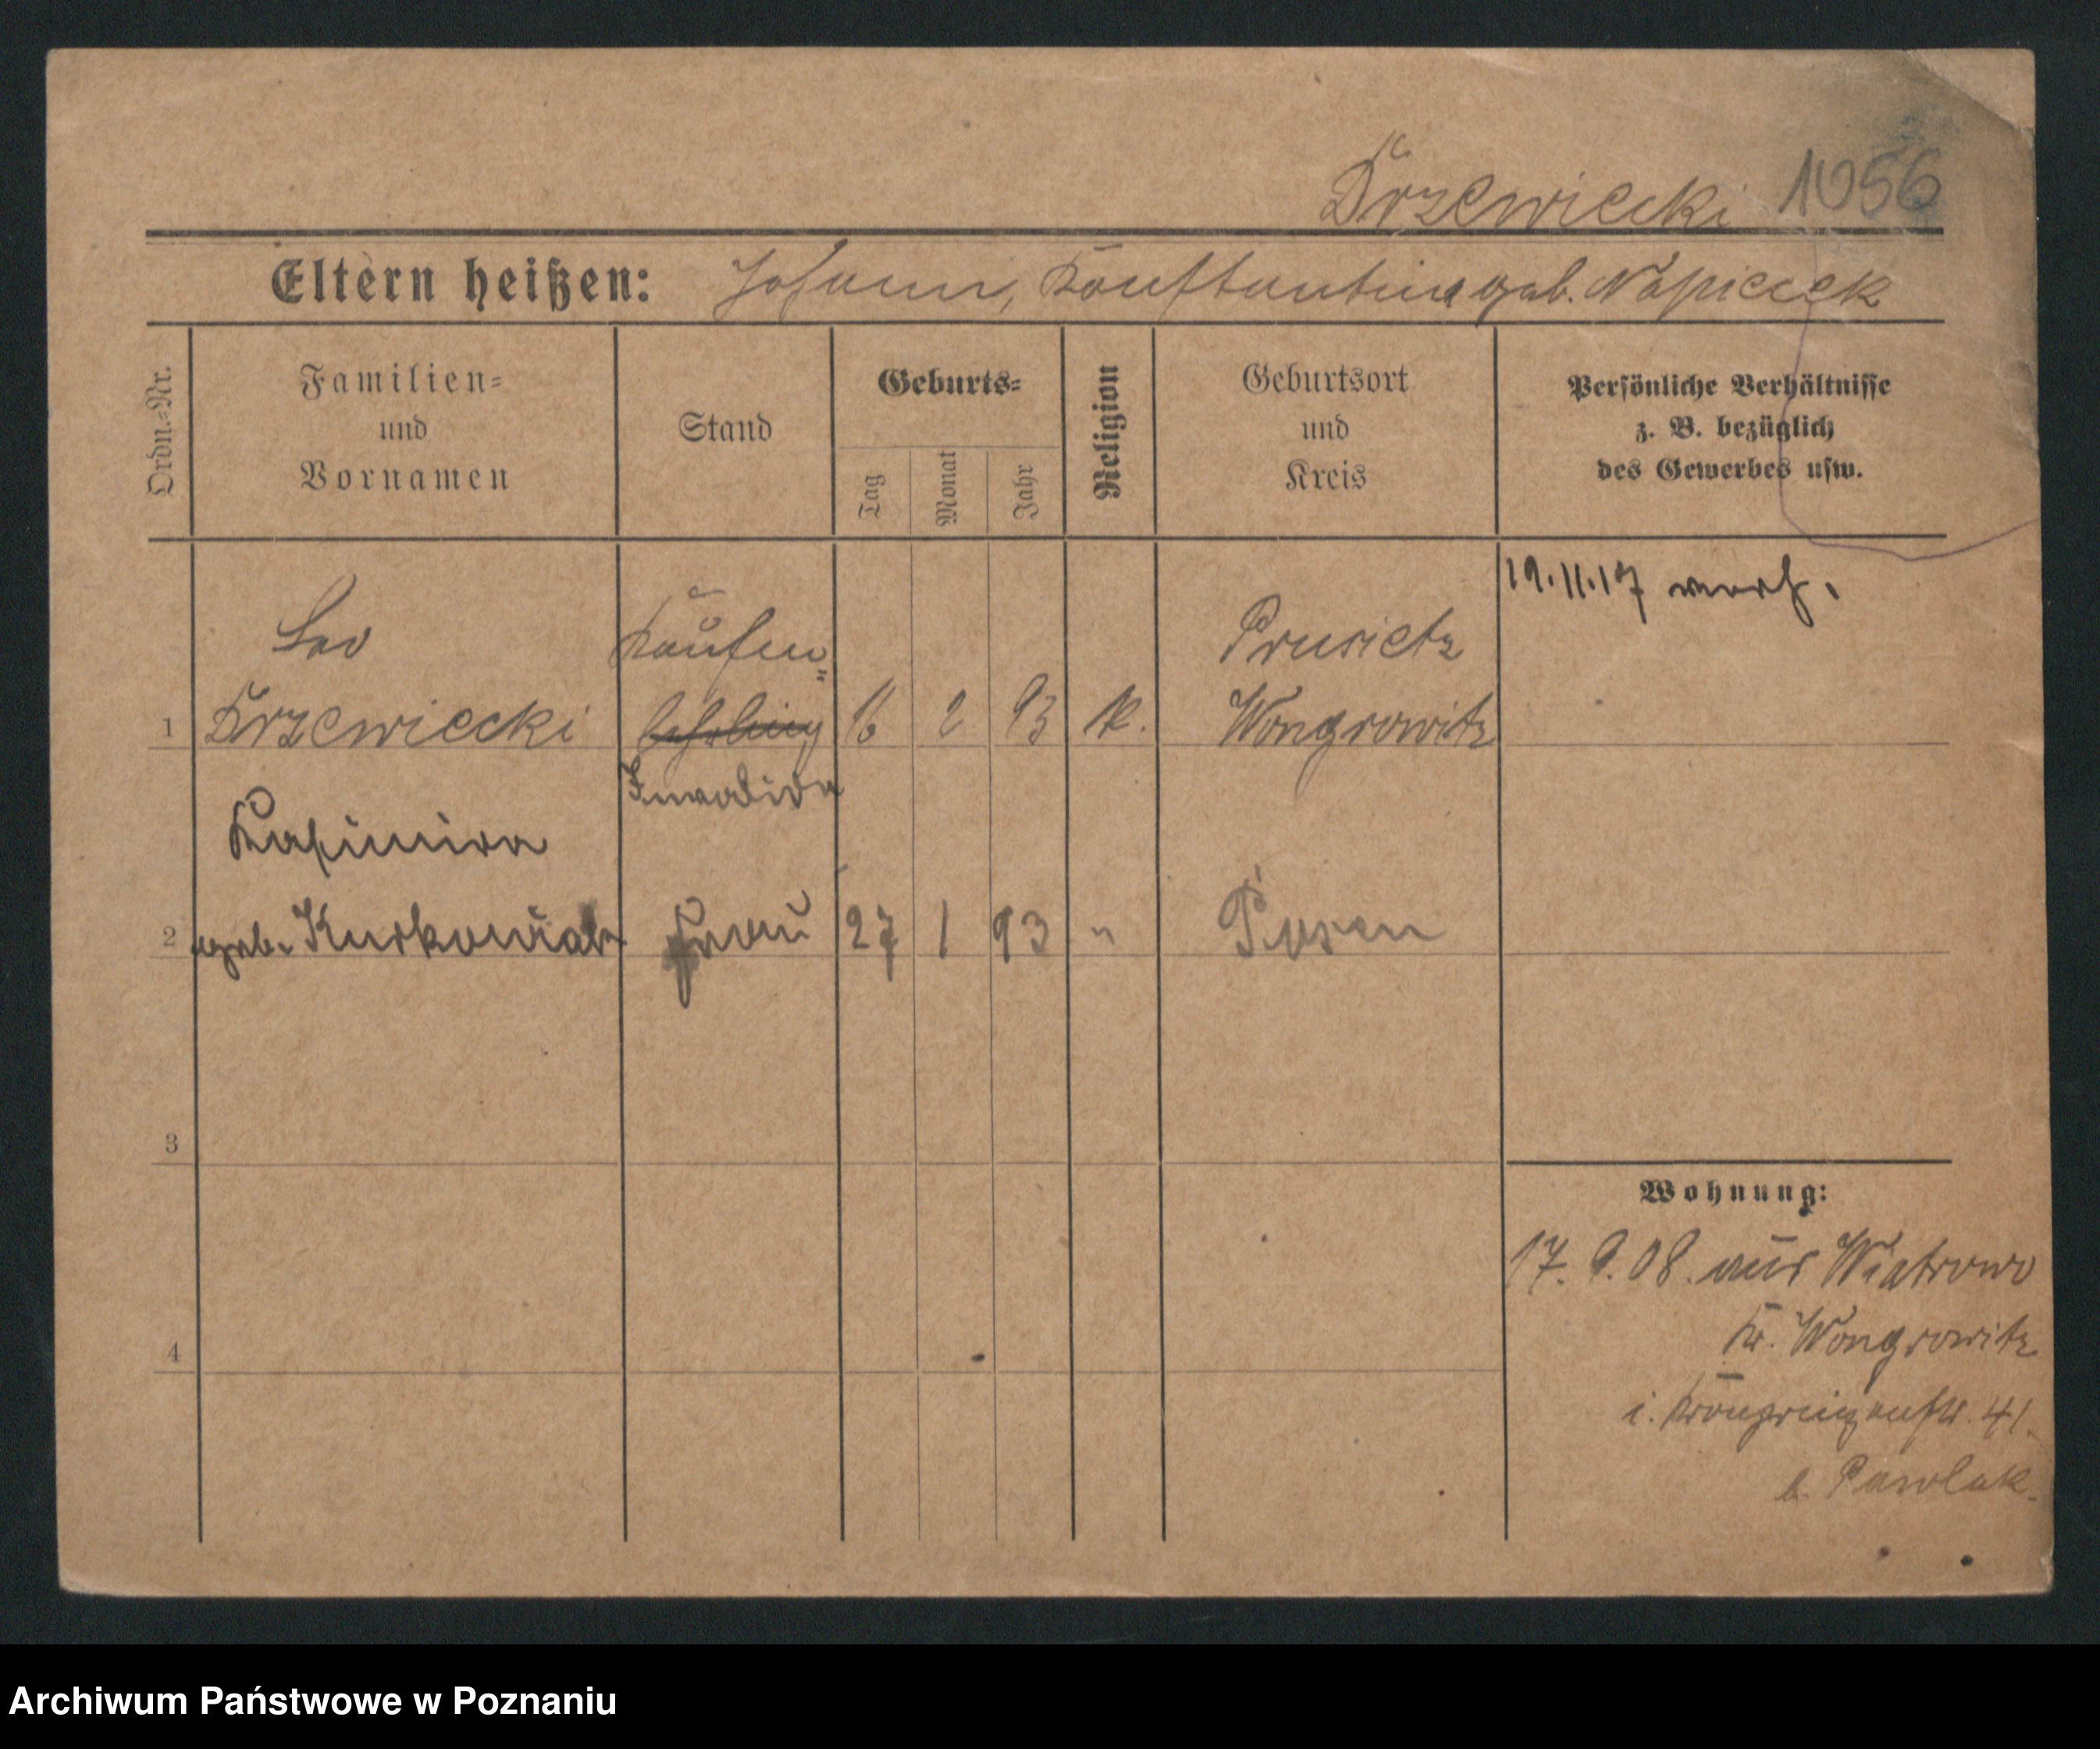 Drzewiecki 1056
Eltern heißen: Johann, Konstantina geb. Napieczek
Ordn.-Nr.
Familien-
und
Vornamen
Stand
Geburts-
Tag
Monat
Jahr
Religion
Geburtsort
und
Kreis
Persönliche Verhältnisse
z. B. bezüglich
des Gewerbes usw.
19.11.17 verh.
Leo
Drzewiecki
lehrling
1
16 2 93 K.
Prusietz
Wongrowitz
Invalide
Kasimira
geb. Kurkowiak
2
Frau
27 1 93 "
Posen
3
4
Wohnung:
17. 9. 08. aus Wiatrowo
Kr. Wongrowitz
i. Kronprinzenstr. 41.
b. Pawlak.
Archiwum Państwowe w Poznaniu